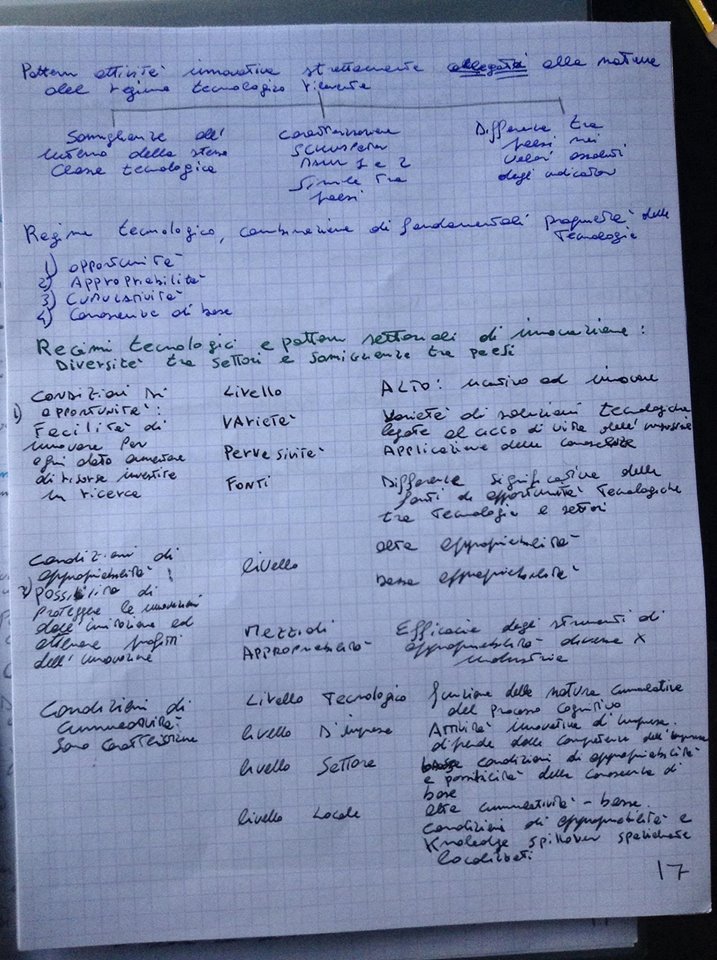 Pattern attività innovative strettamente allegata alla natura
del regime tecnologico rilevante
Somiglianze all'
interno della stessa
Classe tecnologica
Caratterizzazione
SCHUMPETER
MARK 1 e 2
Simile tra
paesi
Differenze tra
paesi nei
valori assoluti
degli indicatori
Regime tecnologico, combinazione di fondamentali proprietà delle
Tecnologie
1) opportunità
2) Appropriabilità
3) CUMULATIVITÀ
4) Conoscenze di base
Regimi tecnologici e pattern settoriali di innovazione:
Diversità tra settori e somiglianze tra paesi
1) CONDIZIONI DI
opportunità:
Facilità di
innovare per
ogni dato ammontare
di risorse investite
in ricerca
Livello
VARIETÀ
PERVESIVITÀ
FONTI
ALTO: incentivo ad innovare
Varietà di soluzioni tecnologiche
legate al ciclo di vita dell'
Applicazione delle conoscenze
Differenze significative delle
fonti di opportunità Tecnologiche
tra Tecnologie e settori
2) Condizioni di
appropriabilità:
possibilità di
proteggere le innovazioni
dall'imitazione ed
ottenere profitti
dell'innovazione
livello
alta appropriabilità
bassa appropriabilità
Mezzi di
APPROPRIABILITÀ
Efficacia degli strumenti di
appropriabilità diversa x
industria
Condizioni di
Cumulatività
Sono caratteristiche
Livello Tecnologico
funzione della natura cumulativa
del processo cognitivo
livello D'impresa
Attività innovativa d'impresa.
dipende dalle competenze dell'impresa
livello Settore
condizioni di appropriabilità
e della conoscenza di
base
livello Locale
alta cumulatività - basse
condizioni di appropriabilità e
Knoledge spillover spazialmente
localizzati
17